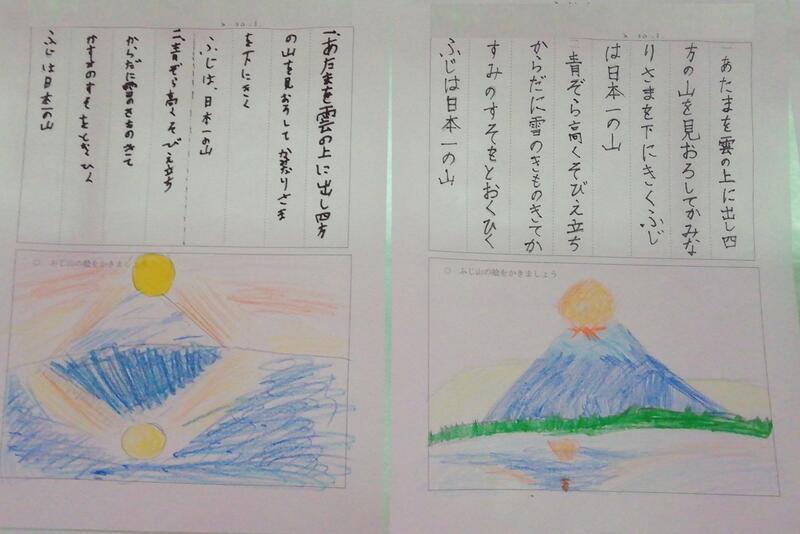 一あたまを雲の上に出し四
方の山を見おろしてかみな
りさまを下にきくふじ
は日本一の山
二青ぞら高くそびえ立ち
からだに雪のきものきてか
すみのすそをとおくひく
ふじは日本一の山
○ ふじ山の絵をかきましょう
一、あたまを雲の上に出し四方
の山を見おろして りさま
を下にきく
ふじは、日本一の山
二、青ぞら高くそびえ立ち
からだに雪のきものきて
かすみのすそをとおくひく
ふじは日本一の山
○ ふじ山の絵をかきまし